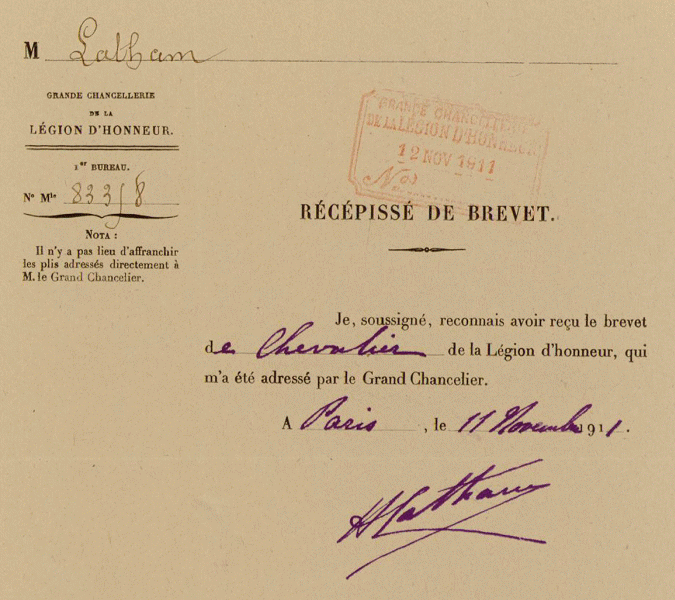 M Latham
GRANDE CHANCELLERIE
DE LA
LÉGION D'HONNEUR.
1er BUREAU.
No Mle 83358
NOTA :
Il n'y a pas lieu d'affranchir
les plis adressés directement à
M. le Grand Chancelier.
GRANDE CHANCELLERIE
DE LA LÉGION D'HONNEUR
12 NOV 1911
RÉCÉPISSÉ DE BREVET.
Je, soussigné, reconnais avoir reçu le brevet
de Chevalier de la Légion d'honneur, qui
m'a été adressé par le Grand Chancelier.
A Paris, le 11 Novembre 1911.
HLatham